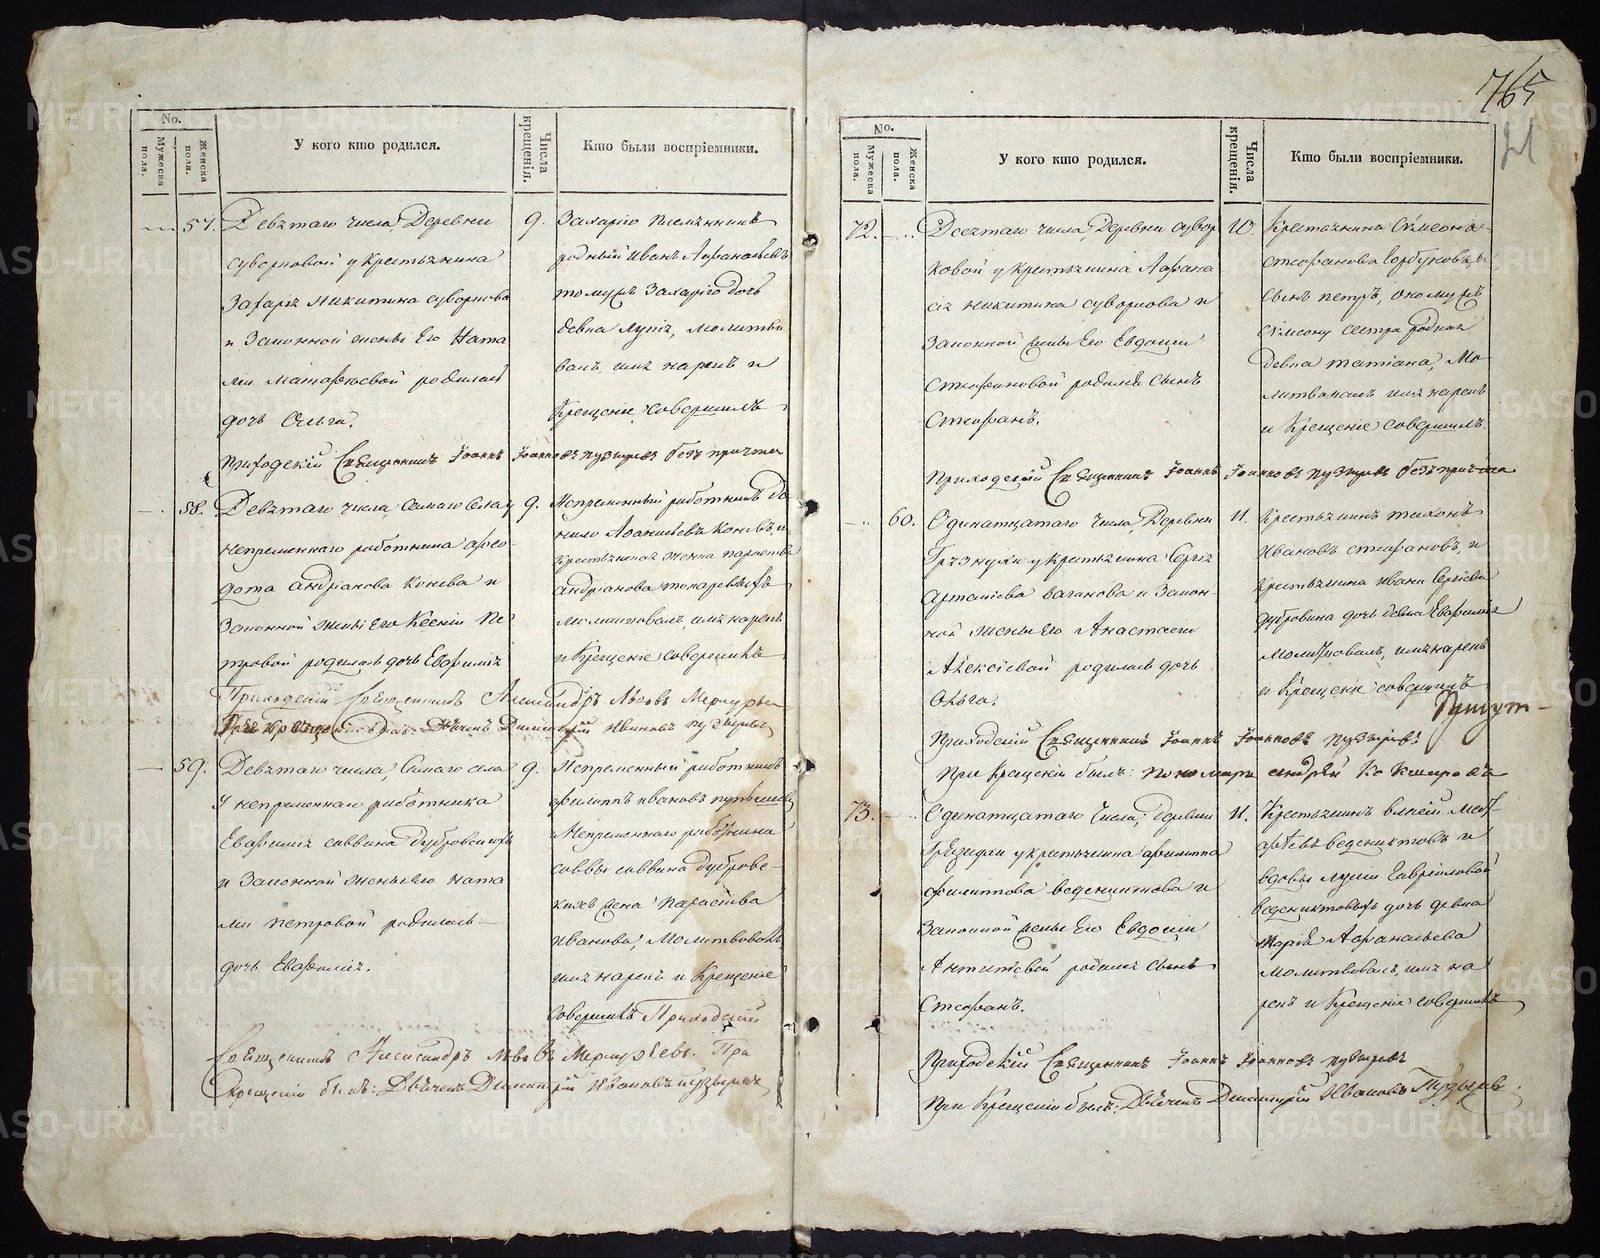 765
21
No.
Мужеска пола.
Женска пола.
У кого кто родился.
Числа крещенія.
Кто были воспріемники.
57.
Девятаго числа, Деревни
суворковой у крестьянина
Захаріа Никитина суворкова
и Законной жены Его Ната
ліи Матфеевой родилась
дочь Ольга.
9.
Захаріа
родный Иванъ Афанасьевъ
томужъ Захарію дочь
девка молитво
валъ имя нарекъ и
Крещеніе совершилъ
Приходскій Священникъ Іоаннъ Іоанновъ Пузыревъ безъ причта
58.
Девятаго числа, Самаго Села у
непременнаго работника фео-
дота Андріанова Конева и
Законной жены Его Ксеніи Пе
тровой родилась дочь Евфимія
9.
Непременный работникъ Да
нило Коневъ, и
крестьянская жонка параскева
андріанова токаревыхъ
Молитвовалъ, имя нарекъ
и Крещеніе совершилъ
Приходскій Священникъ Александръ Львовъ Меркурьевъ
При Крещеніи былъ: Дьячекъ Димитрій Ивановъ Пузыревъ
59.
Девятаго числа, Самаго села
у непременнаго работника
Евфимія саввина Дубровскихъ
и Законной жены Его Ната
ліи петровой родилась
дочь Евфимія.
9.
Непременный работникъ
филиппъ ивановъ
Непременнаго работника
саввы саввина Дубровс-
кихъ жена Параскева
Иванова, Молитвовалъ
имя нарекъ и Крещеніе
Совершилъ Приходскій
Священникъ Александръ Львовъ Меркурьевъ. При
Крещеніи былъ: Дьячекъ Димитрій Ивановъ Пузыревъ
No.
Мужеска пола.
Женска пола.
У кого кто родился.
Числа крещенія.
Кто были воспріемники.
72.
Десятаго числа, Деревни сувор
ковой у крестьянина Афана
сіа никитина суворкова и
Законной жены Его Евдокіи
Стефановой родился сынъ
Стефанъ.
10.
Крестьянина Симеона
стефанова Горбуновыхъ
сынъ петръ, оному жъ
симеону сестра родная
девка татіана, Мо
литвовалъ имя нарекъ
и Крещеніе совершилъ.
Приходскій Священникъ Іоаннъ Іоанновъ Пузыревъ безъ причта
60.
Одинатцатаго числа, Деревни
Грязнухи у крестьянина Сергія
Ваганова и Закон-
ной жены Его Анастасіи
Алексіевой родилась дочь
Ольга.
11.
Крестьянинъ тихонъ
Ивановъ стефановъ, и
Крестьянина ивана Сергіева
дубровина дочь девка Евфимія
Молитвовалъ, имя нарекъ
и Крещеніе совершилъ
Приходскій Священникъ Іоаннъ Іоанновъ Пузыревъ.
При крещеніи былъ: Пономарь андрей
73.
Одинатцатаго числа, Деревни
у крестьянина филиппа
филиппова веденихтова и
Законной жены Его Евдокіи
Антипіевой родился сынъ
Стефанъ.
11.
Крестьянинъ Матф-
феевъ ведениктовъ и
вдовы Лукіи Гавріиловой
ведениктовыхъ дочь девка
Марія Афанасьева
Молитвовалъ, имя на
рекъ и Крещеніе совершилъ
Приходскій Священникъ Іоаннъ Іоанновъ Пузыревъ
При Крещеніи былъ: Дьячекъ Димитрій Ивановъ Пузыревъ.
METRIKI.GASO-URAL.RU